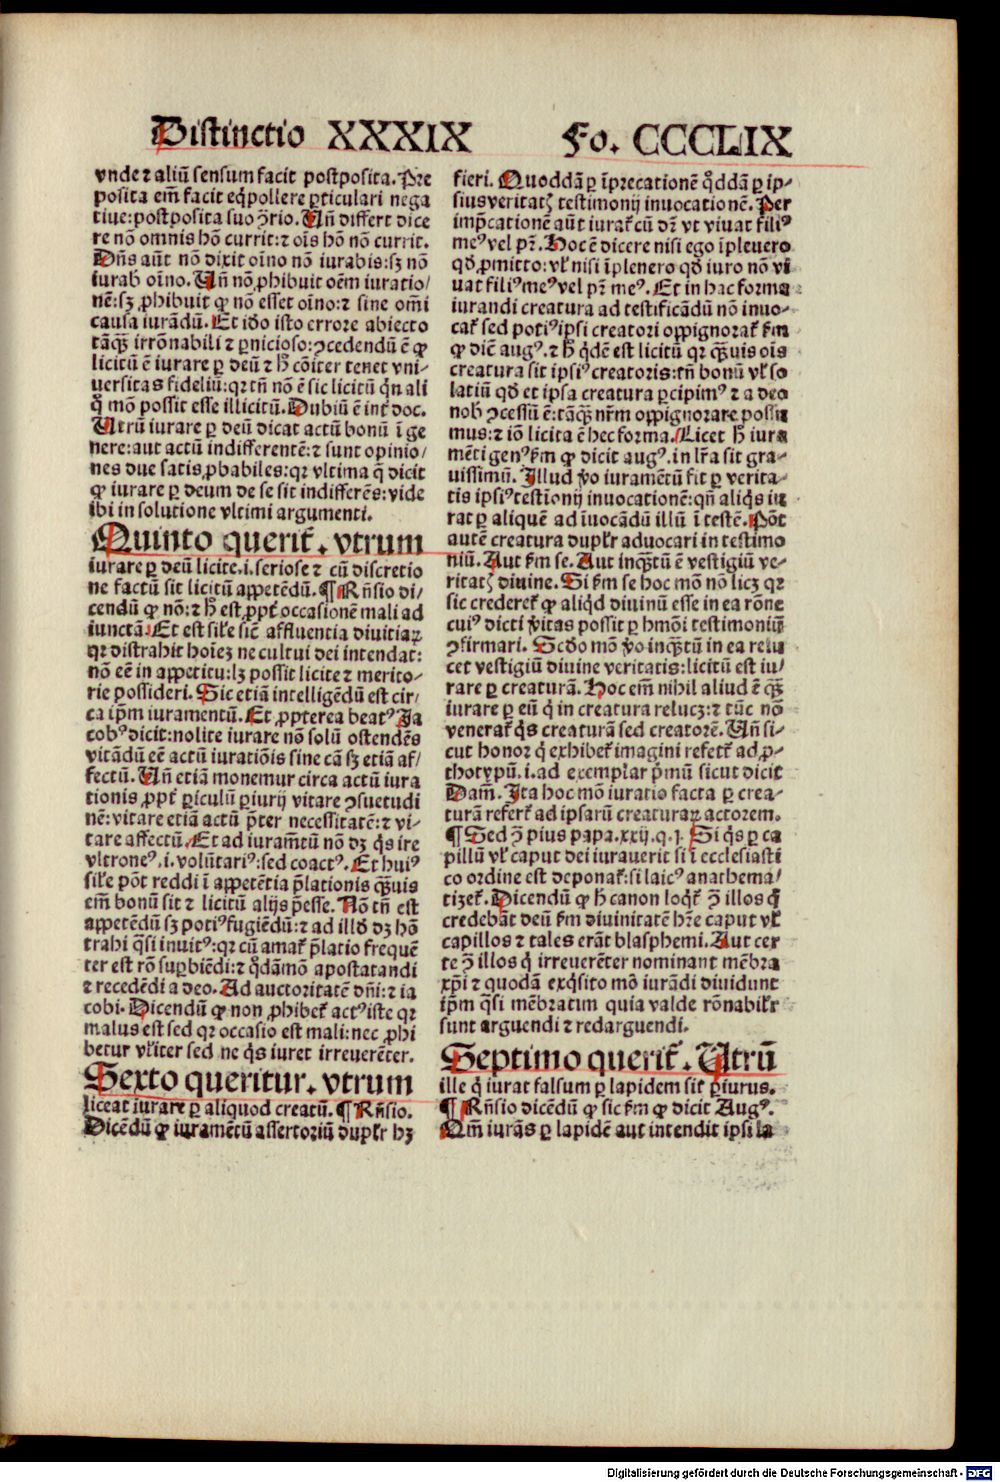 Distinctio XXXIX Fo. CCCLIX
vnde ⁊ aliũ sensum facit postposita. Pre
posita em̃ facit eq̃pollere ꝑticulari nega
tiue: postposita suo ꝯ̃rio. Vñ differt dice
re nõ omnis hõ currit: ⁊ oĩs hõ nõ currit.
Dñs aũt nõ dixit oĩno nõ iurabis: sꝫ nõ
iurab̃ oĩno. Vñ nõ ꝓhibuit oẽm iuratio/
nẽ: sꝫ ꝓhibuit ꝙ nõ esset oĩno: ⁊ sine om̃i
causa iurãdũ. Et iõo isto errore abiecto
tãqꝫ̃ irrõnabili ⁊ ꝑnicioso: ꝯcedendũ ẽ ꝙ
licitũ ẽ iurare ꝑ deũ ⁊ h̃ cõiter tenet vni-
uersitas fideliũ: qꝛ tñ nõ ẽ sic licitũ q̃n ali
q̊ mõ possit esse illicitũ. Dubiũ ẽ int̃ doc.
Vtrũ iurare ꝑ deũ dicat actũ bonũ ĩ ge
nere: aut actũ indifferentẽ: ⁊ sunt opinio/
nes due satis ꝓbabiles: qꝛ vltima q̃ dicit
ꝙ iurare ꝑ deum de se sit indifferẽs: vide
ibi in solutione vltimi argumenti.
Quinto querit̃. vtrum
iurare ꝑ deũ licite .i. seriose ⁊ cũ discretio
ne factũ sit licitũ appetẽdũ. ¶ Rñsio di/
cendũ ꝙ nõ: ⁊ h̃ est ꝓpt̃ occasionẽ mali ad
iunctã. Et est sil̃e sic̃ affluentia diuitiaꝝ
qꝛ distrahit hoĩeꝫ ne cultui dei intendat:
nõ eẽ in appetitu: lꝫ possit licite ⁊ merito-
rie possideri. Sic etiã intelligẽdũ est cir/
ca ip̃m iuramentũ. Et ꝓpterea beatꝰ Ja
cobꝰ dicit: nolite iurare nõ solũ ostendẽs
vitãdũ eẽ actũ iuratiõis sine cã sꝫ etiã af/
fectũ. Vñ etiã monemur circa actũ iura
tionis ꝓpt̃ ꝑiculũ ꝑiurij vitare ꝯsuetudi
nẽ: vitare etiã actũ p̃ter necessitatẽ: ⁊ vi-
tare affectũ. Et ad iuram̃tũ nõ dꝫ q̃s ire
vltroneꝰ .i. volũtariꝰ: sed coactꝰ. Et huiꝰ
sil̃e põt reddi ĩ appetẽtia p̃lationis qꝫ̃uis
em̃ bonũ sit ⁊ licitũ alijs p̃esse. Nõ tñ est
appetẽdũ sꝫ potiꝰ fugiẽdũ: ⁊ ad illđ dꝫ hõ
trahi q̃si inuitꝰ: qꝛ cũ amat̃ p̃latio frequẽ
ter est rõ suꝑbiẽdi: ⁊ q̃dãmõ apostatandi
⁊ recedẽdi a deo. Ad auctoritatẽ dñi: ⁊ ia
cobi. Dicendũ ꝙ non ꝓhibet̃ actꝰ iste qꝛ
malus est sed qꝛ occasio est mali: nec ꝓhi
betur vl̃iter sed ne q̃s iuret irreuerẽter.
Sexto queritur. vtrum
liceat iurare ꝑ aliquod creatũ. ¶ Rñsio.
Dicẽdũ ꝙ iuramẽtũ assertoriũ dupl̃r hꝫ
fieri. Quoddã ꝑ ĩprecationẽ q̊ddã ꝑ ip-
sius veritatꝭ testimonij inuocationẽ. Per
imp̃cationẽ aũt iurat̃ cũ dr̃ vt viuat filiꝰ
meꝰ vel pr̃. Hoc ẽ dicere nisi ego ĩpleuero
qđ ꝓmitto: vl̃ nisi ĩplenero qđ iuro nõ vi
uat filiꝰ meꝰ vel pr̃ meꝰ. Et in hac forma
iurandi creatura ad testificãdũ nõ inuo-
cat̃ sed potiꝰ ipsi creatori oppignorat̃ ẜm
ꝙ dic̃ augꝰ. ⁊ h̃ q̃dẽ est licitũ qꝛ qꝫ̃uis oĩs
creatura sit ipsiꝰ creatoris: tñ bonũ vl̃ so
latiũ qđ et ipsa creatura ꝑcipimꝰ ⁊ a deo
nob̃ ꝯcessũ ẽ: tãqꝫ̃ nr̃m oppignorare possu
mus: ⁊ iõ licita ẽ hec forma. Licet h̃ iura
mẽti genꝰ ẜm ꝙ dicit augꝰ. in lr̃a sit gra-
uissimũ. Illud ṽo iuramẽtũ fit ꝑ verita-
tis ipsiꝰ testĩonij inuocationẽ: qñ aliq̃s iu
rat ꝑ aliquẽ ad ĩuocãdũ illũ ĩ testẽ. Põt
autẽ creatura dupl̃r aduocari in testimo
niũ. Aut ẜm se. Aut inqꝫ̃tũ ẽ vestigiũ ve-
ritatꝭ diuine. Si ẜm se hoc mõ nõ licꝫ qꝛ
sic crederet̃ ꝙ aliq̃d diuinũ esse in ea rõne
cuiꝰ dicti ṽitas possit ꝑ hmõi testimoniũ
ꝯfirmari. Scđo mõ ṽo inqꝫ̃tũ in ea relu
cet vestigiũ diuine veritatis: licitũ est iu/
rare ꝑ creaturã. Hoc em̃ nihil aliud ẽ qꝫ̃
iurare ꝑ eũ q̃ in creatura relucꝫ: ⁊ tũc nõ
venerat̃ q̃s creaturã sed creatorẽ. Vñ si-
cut honor q̃ exhibet̃ imagini refert̃ ad ꝓ-
thotypũ .i. ad exemplar p̃mũ sicut dicit
Dam̃. Ita hoc mõ iuratio facta ꝑ crea-
turã refert̃ ad ipsarũ creaturaꝝ actorem.
¶ Sed ꝯ̃ pius papa .xxij. q. j. Si q̃s ꝑ ca
pillũ vl̃ caput dei iurauerit si ĩ ecclesiasti
co ordine est deponat̃: si laicꝰ anathema/
tizet̃. Dicendũ ꝙ h̃ canon loq̃t̃ ꝯ̃ illos q̃
credebãt deũ ẜm diuinitatẽ hr̃e caput vl̃
capillos ⁊ tales erãt blasphemi. Aut cer
te ꝯ̃ illos q̃ irreuerẽter nominant mẽbra
xp̃i ⁊ quodã exq̃sito mõ iurãdi diuidunt
ip̃m q̃si mẽbratim quia valde rõnabil̃r
sunt arguendi ⁊ redarguendi.
Septimo querit̃. Vtrũ
ille q̃ iurat falsum ꝑ lapidem sit ꝑiurus.
¶ Rñsio dicẽdũ ꝙ sic ẜm ꝙ dicit Augꝰ.
Qm̃ iurãs ꝑ lapidẽ aut intendit ipsi la
Digitalisierung gefördert durch die Deutsche Forschungsgemeinschaft - DFG